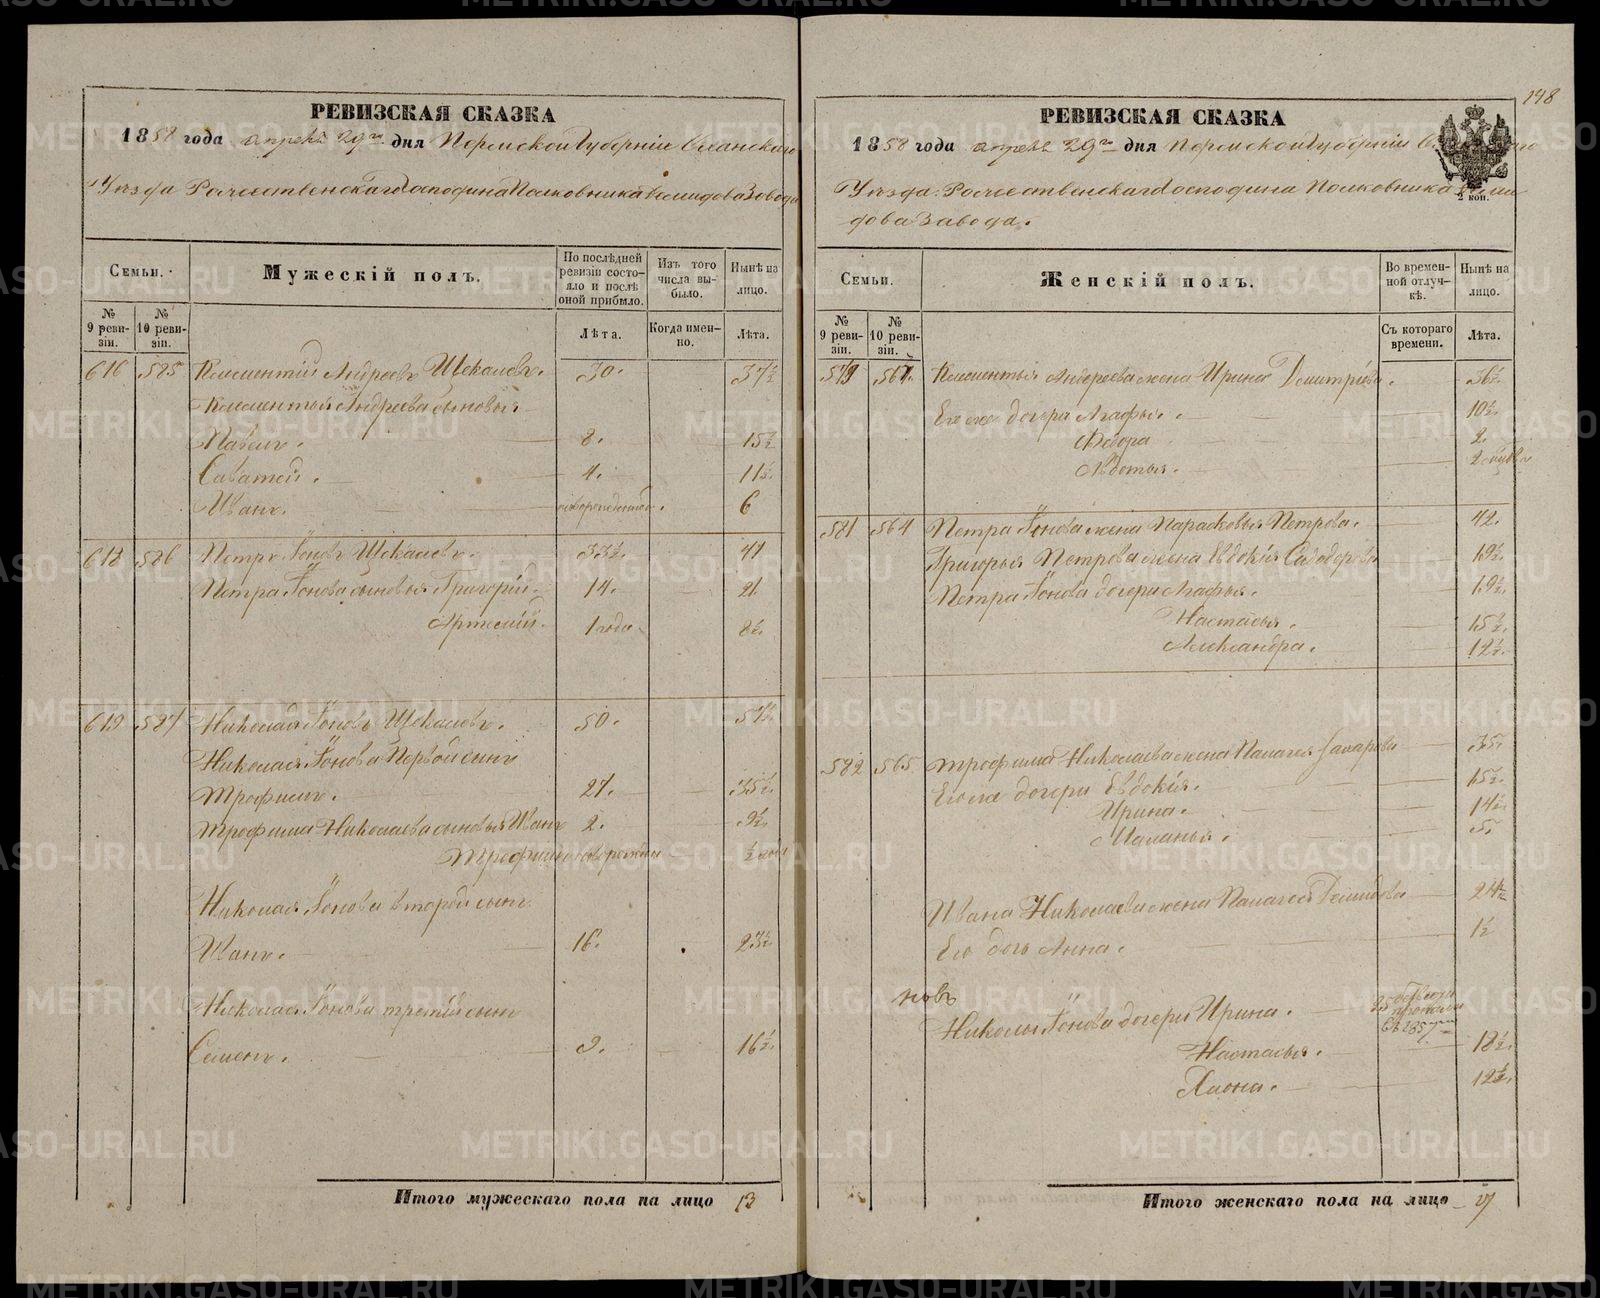 148
РЕВИЗСКАЯ СКАЗКА
1858 года апреля 29го дня Пермской Губерніи Оханскаго
Уѣзда Рождественскаго Господина Полковника Демидова Завода
Семьи.
Мужескій полъ.
По послѣдней ревизіи состояло и послѣ оной прибыло.
Изъ того числа выбыло.
Нынѣ на лицо.
№ 9 ревизіи.
№ 10 ревизіи.
Лѣта.
Когда именно.
Лѣта.
616 585 Клементій Андреевъ Щекалевъ. 30. 37½
Клементья Андреева сыновья
Павелъ. 8. 15½
Саватей. 4. 11½.
Иванъ. новорожденный. 6
618 586 Петръ Іоновъ Щекалевъ. 33½. 41
Петра Іонова сыновья Григорій. 14. 21.
Артемій. 1 года 8½.
619 587 Николай Іоновъ Щекалевъ. 50. 57½.
Николая Іонова Первой сынъ
Трофимъ. 27. 35½.
Трофима Николаева сыновья Иванъ 2. 9½.
Трофимъ ½
Николая Іонова второй сынъ
Иванъ. 16. 23½.
Николая Іонова третій сынъ
Семенъ. 9. 16½.
Итого мужескаго пола на лицо 13
РЕВИЗСКАЯ СКАЗКА
1858 года апреля 29го дня Пермской Губерніи
Уѣзда Рождественскаго Господина Полковника Деми
дова Завода.
2 коп.
Семьи.
Женскій полъ.
Во временной отлучкѣ.
Нынѣ на лицо.
№ 9 ревизіи.
№ 10 ревизіи.
Съ котораго времени.
Лѣта.
579 Клементья Андреева жена Ирина Дмитріева. 36½.
Его же дочери Агафья. 10½.
Федора 2.
Авдотья. 2
581 564 Петра Іонова жена Парасковья Петрова. 42.
Григорья Петрова жена Евдокія 19½.
Петра Іонова дочери Агафья. 19½.
Настасья. 15½.
Александра. 12½.
582 565. Трофима Николаева жена Палагея Захарова 35.
Его же дочери Евдокія. 15½.
Ирина. 14½
Маланья. 5.
Ивана Николаева жена Палагея Демидова 24½
Его дочь Анна. 1½
новъ
Николы Іонова дочери Ирина. 25
съ 1857
Настасья. 18½.
Хіона. 12½.
Итого женскаго пола на лицо 17